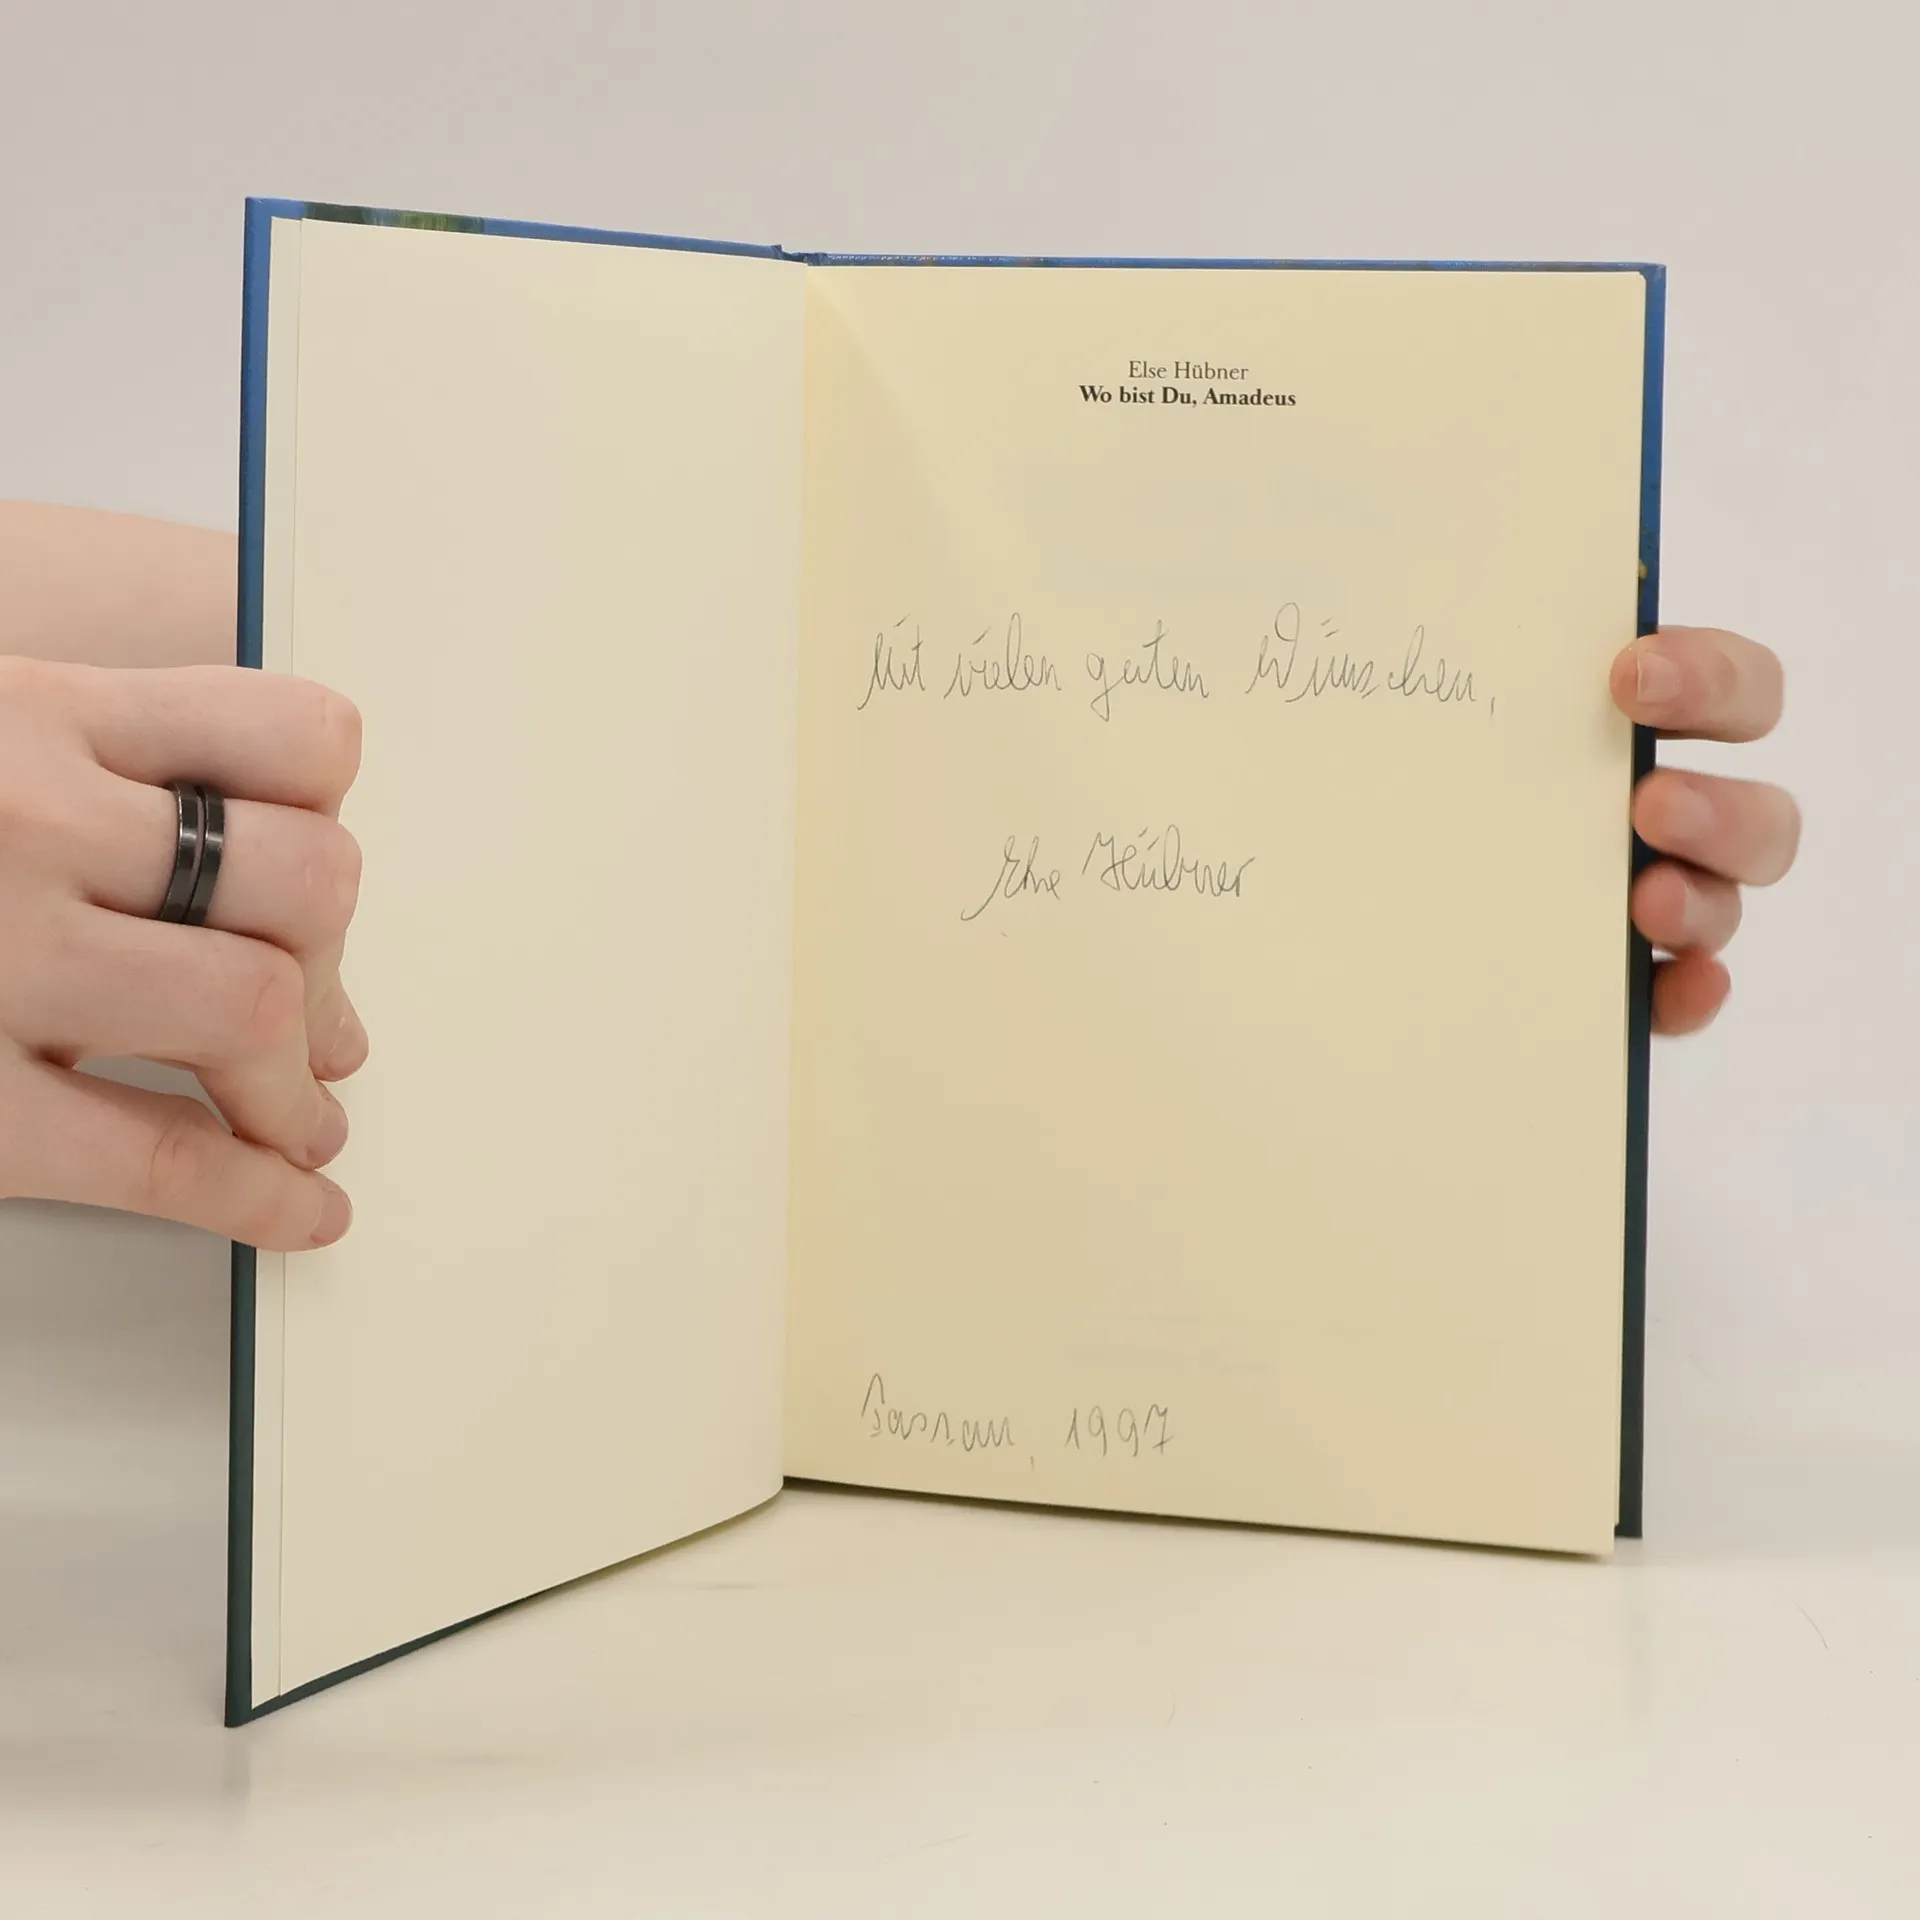 Else Hübner
Wo bist Du, Amadeus
Mit vielen guten Wünschen,
Else Hübner
Passau, 1997